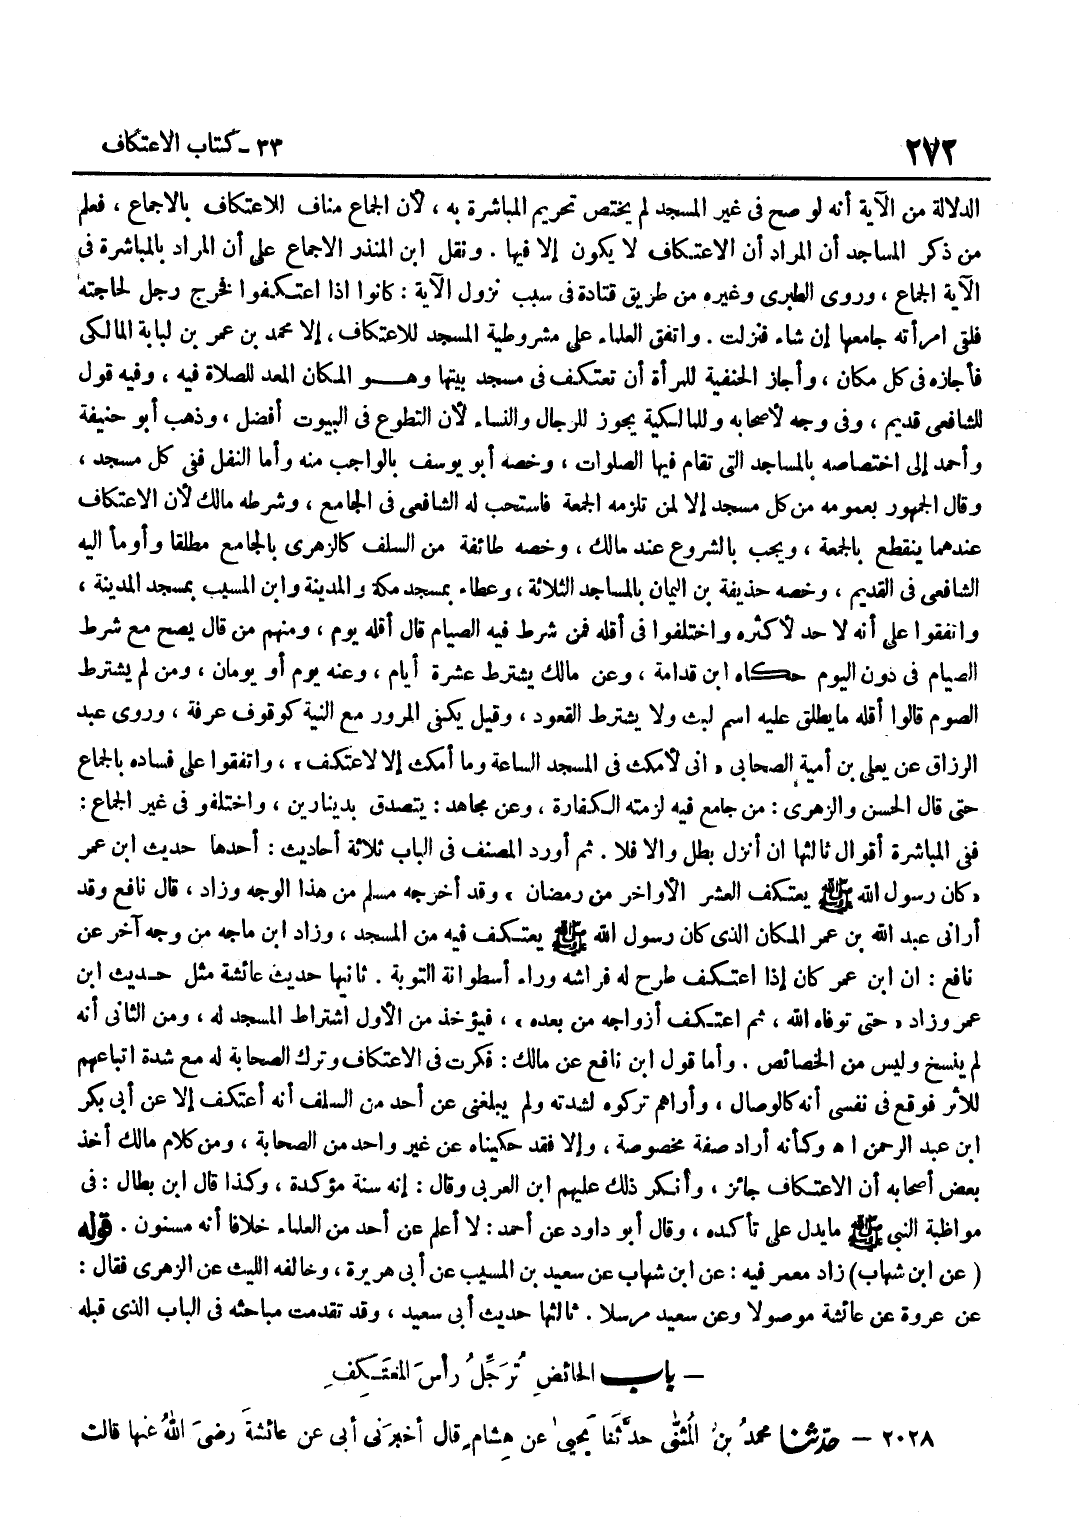 ٢٧٢
٣٣ - كتاب الاعتكاف
الدلالة من الآية أنه لو صح فى غير المسجد لم يختص تحريم المباشرة به ، لأن الجماع مناف للاعتكاف بالاجماع ، فعلم
من ذكر المساجد أن المراد أن الاعتكاف لا يكون إلا فيها . ونقل ابن المنذر الاجماع على أن المراد بالمباشرة فى
الآية الجماع ، وروى الطبرى وغيره من طريق قتادة فى سبب نزول الآية : كانوا اذا اعتكفوا فخرج رجل لحاجته
فلقى امرأته جامعها إن شاء فنزلت . واتفق العلماء على مشروطية المسجد للاعتكاف ، إلا محمد بن عمر بن لبابة المالكى
فأجازه فى كل مكان ، وأجاز الحنفية للمرأة أن تعتكف فى مسجد بيتها وهو المكان المعد للصلاة فيه ، وفيه قول
للشافعى قديم ، وفى وجه لأصحابه وللمالكية يجوز للرجال والنساء لأن التطوع فى البيوت أفضل ، وذهب أبو حنيفة
وأحمد إلى اختصاصه بالمساجد التى تقام فيها الصلوات ، وخصه أبو يوسف بالواجب منه وأما النفل ففى كل مسجد ،
وقال الجمهور بعمومه من كل مسجد إلا لمن تلزمه الجمعة فاستحب له الشافعى فى الجامع ، وشرطه مالك لأن الاعتكاف
عندهما ينقطع بالجمعة ، ويجب بالشروع عند مالك ، وخصه طائفة من السلف كالزهرى بالجامع مطلقا وأومأ اليه
الشافعى فى القديم ، وخصه حذيفة بن اليمان بالمساجد الثلاثة ، وعطاء بمسجد مكة والمدينة وابن المسيب بمسجد المدينة ،
واتفقوا على أنه لا حد لأكثره واختلفوا فى أقله فمن شرط فيه الصيام قال أقله يوم ، ومنهم من قال يصح مع شرط
الصيام فى دون اليوم حكاه ابن قدامة ، وعن مالك يشترط عشرة أيام ، وعنه يوم أو يومان ، ومن لم يشترط
الصوم قالوا أقله ما يطلق عليه اسم لبث ولا يشترط القعود ، وقيل يكفى المرور مع النية كوقوف عرفة ، وروى عبد
الرزاق عن يعلى بن أمية الصحابى « انى لأمكث فى المسجد الساعة وما أمكث إلا لاعتكف » ، واتفقوا على فساده بالجماع
حتى قال الحسن والزهرى : من جامع فيه لزمته الكفارة ، وعن مجاهد : يتصدق بدينارين ، واختلفو فى غير الجماع :
ففى المباشرة أقوال ثالثها ان أنزل بطل والا فلا . ثم أورد المصنف فى الباب ثلاثة أحاديث : أحدها حديث ابن عمر
« كان رسول الله ﷺ يعتكف العشر الأواخر من رمضان » وقد أخرجه مسلم من هذا الوجه وزاد ، قال نافع وقد
أرانى عبد الله بن عمر المكان الذى كان رسول الله ﷺ يعتكف فيه من المسجد ، وزاد ابن ماجه من وجه آخر عن
نافع : ان ابن عمر كان إذا اعتكف طرح له فراشه وراء أسطوانة التوبة . ثانيها حديث عائشة مثل حديث ابن
عمر وزاد « حتى توفاه الله ، ثم اعتكف أزواجه من بعده » ، فيؤخذ من الأول اشتراط المسجد له ، ومن الثانى أنه
لم ينسخ وليس من الخصائص . وأما قول ابن نافع عن مالك : فكرت فى الاعتكاف وترك الصحابة له مع شدة اتباعهم
للأثر فوقع فى نفسى أنه كالوصال ، وأراهم تركوه لشدته ولم يبلغنى عن أحد من السلف أنه اعتكف إلا عن أبى بكر
ابن عبد الرحمن اه وكأنه أراد صفة مخصوصة ، وإلا فقد حكيناه عن غير واحد من الصحابة ، ومن كلام مالك أخذ
بعض أصحابه أن الاعتكاف جائز ، وأنكر ذلك عليهم ابن العربى وقال : إنه سنة مؤكدة ، وكذا قال ابن بطال : فى
مواظبة النبي ﷺ ما يدل على تأكده ، وقال أبو داود عن أحمد : لا أعلم عن أحد من العلماء خلافا أنه مسنون . قوله
( عن ابن شهاب ) زاد معمر فيه : عن ابن شهاب عن سعيد بن المسيب عن أبى هريرة ، وخالفه الليث عن الزهرى فقال :
عن عروة عن عائشة موصولا وعن سعيد مرسلا . ثالثها حديث أبى سعيد ، وقد تقدمت مباحثه فى الباب الذى قبله
– باب الحائضِ تُرَجِّلُ رأسَ المعتَكِفِ
٢٠٢٨ – حدثنا محمدُ بنُ المثنَّى حدَّثَنا يَحيىٰ عن هِشامٍ قال أخبرَنى أبى عن عائشةَ رضىَ اللهُ عنها قالت